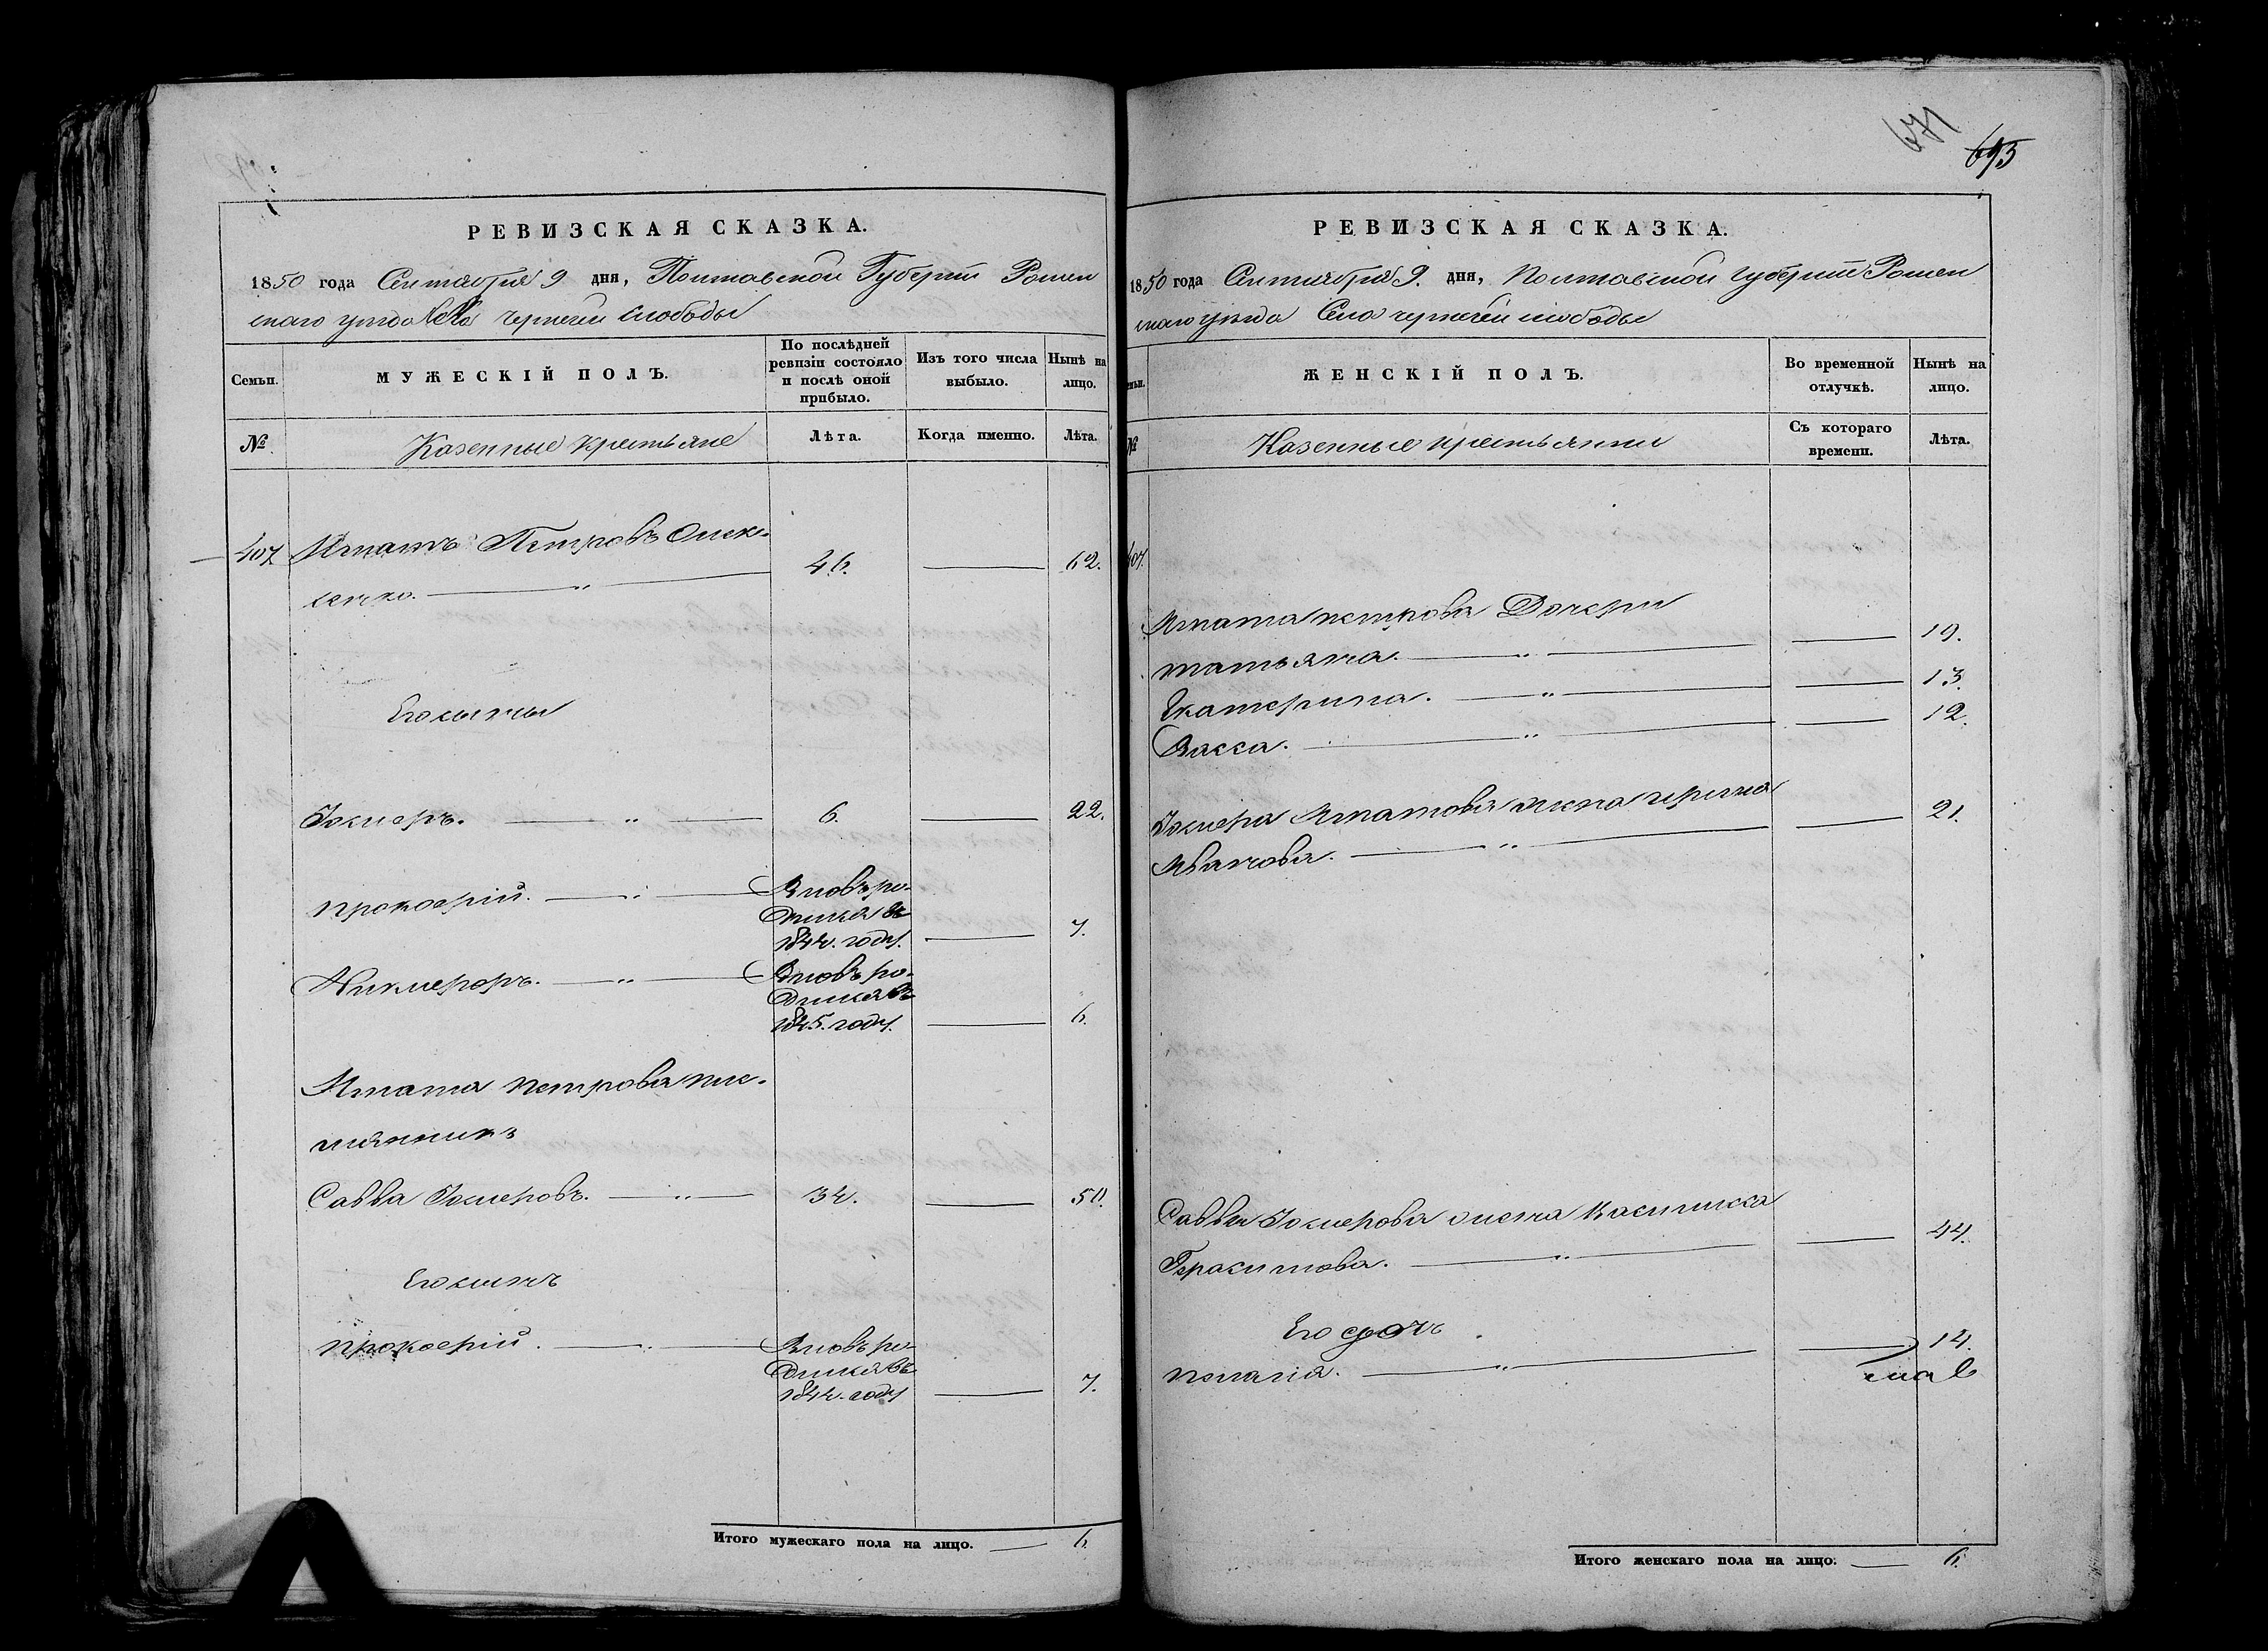 671
695
РЕВИЗСКАЯ СКАЗКА.
1850 года Сентября 9 дня, Полтавской Губерніи Ромен
скаго уезда Села Чернечей слободы
Семьи.
МУЖЕСКІЙ ПОЛЪ.
По послѣдней ревизіи состояло и послѣ оной прибыло.
Изъ того числа выбыло.
Нынѣ на лицо.
№
Казенные крестьяне
Лѣта.
Когда именно.
Лѣта.
407. Игнатъ Петровъ Олексенко. 46. 62.
Его сыны
6. 22.
прокофій. Вновь родился въ 1844. году. 7.
Никифоръ. Вновь родился въ 1845. году. 6.
Игната петрова племянникъ
Савва 34. 50.
Его сынъ
прокофій. Вновь родился въ 1844. году 7.
Итого мужескаго пола на лицо. 6.
РЕВИЗСКАЯ СКАЗКА.
1850 года Сентября 9. дня, Полтавской губерніи Ромен
скаго уезда Села чернечей слободы
ЖЕНСКІЙ ПОЛЪ.
Во временной отлучкѣ.
Нынѣ на лицо.
№
Казенные крестьянки
Съ котораго времени.
Лѣта.
407.
Игната петрова Дочери
татьяна. 19.
Екатерина. 13.
Васса. 12.
Игнатова жена ирина
Иванова. 21.
Саввы жена Василиса
Герасимова. 44.
Его дочь
пелагія. 14.
Итого женскаго пола на лицо. 6.